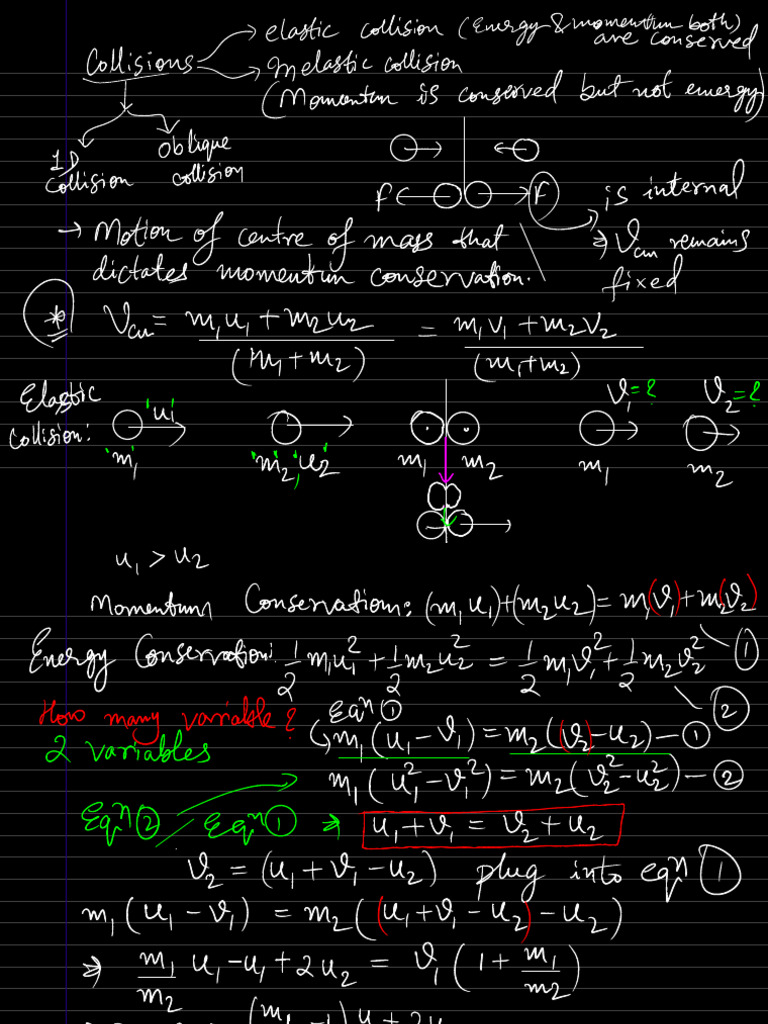 elastic collision (Energy & momentum both)
are conserved
Collisions
Inelastic collision
(Momentum is conserved but not energy)
1D
collision
Oblique
collision
F
F
is internal
⇒ V_cm remains
fixed
→ Motion of centre of mass that
dictates momentum conservation.
* V_cm = (m₁u₁ + m₂u₂)/(m₁ + m₂) = (m₁v₁ + m₂v₂)/(m₁+m₂)
Elastic
collision:
'u₁'
'm₁'
'm₂', 'u₂'
m₁ m₂
v₁ = ?
m₁
v₂ = ?
m₂
u₁ > u₂
Momentum Conservation: (m₁u₁)+(m₂u₂) = m₁(v₁)+m₂(v₂) — ①
Energy Conservation: 1/2 m₁u₁² + 1/2 m₂u₂² = 1/2 m₁v₁² + 1/2 m₂v₂² — ②
How many variable?
2 variables
Eqⁿ ①
↳ m₁(u₁ - v₁) = m₂(v₂ - u₂) — ①
m₁(u₁² - v₁²) = m₂(v₂² - u₂²) — ②
Eqⁿ② / Eqⁿ① ⇒ u₁ + v₁ = v₂ + u₂
v₂ = (u₁ + v₁ - u₂) plug into eqⁿ ①
m₁(u₁ - v₁) = m₂((u₁ + v₁ - u₂) - u₂)
⇒ m₁/m₂ u₁ - u₁ + 2u₂ = v₁(1 + m₁/m₂)